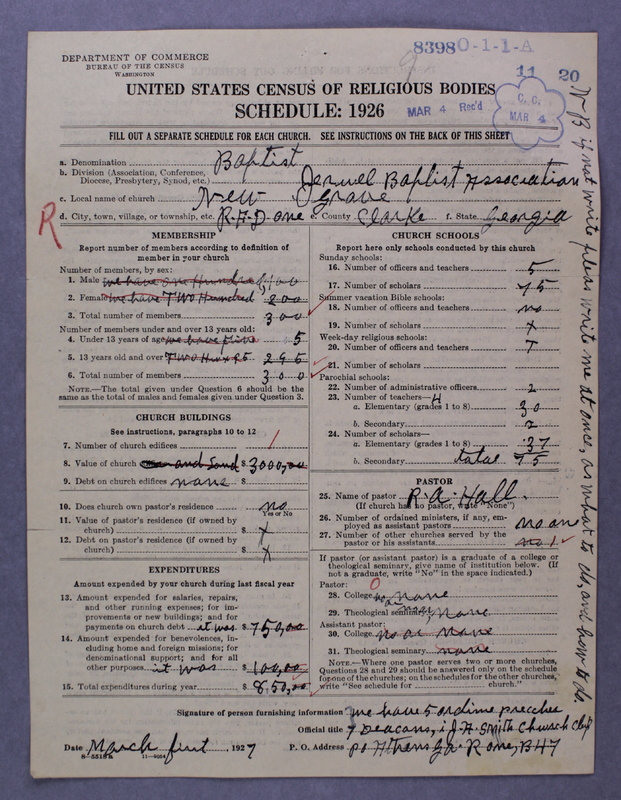 8398 0-1-1-A
DEPARTMENT OF COMMERCE
BUREAU OF THE CENSUS
WASHINGTON
11 20
UNITED STATES CENSUS OF RELIGIOUS BODIES
SCHEDULE: 1926
MAR 4 Rec'd
C. C.
MAR 4
FILL OUT A SEPARATE SCHEDULE FOR EACH CHURCH. SEE INSTRUCTIONS ON THE BACK OF THIS SHEET
a. Denomination Baptist
b. Division (Association, Conference, Diocese, Presbytery, Synod, etc.) Jeruel Baptist Association
c. Local name of church New Grove
d. City, town, village, or township, etc. R.F.D. one e. County Clarke f. State Georgia
R
MEMBERSHIP
Report number of members according to definition of
member in your church
Number of members, by sex:
1. Male we have one Hundred 100
2. Female we have TWO Hundred 200
3. Total number of members 300
Number of members under and over 13 years old:
4. Under 13 years of age we have five 5
5. 13 years old and over TWO Hun 95 295
6. Total number of members 300
NOTE.—The total given under Question 6 should be the
same as the total of males and females given under Question 3.
CHURCH BUILDINGS
See instructions, paragraphs 10 to 12
7. Number of church edifices /
8. Value of church and Land $ 3000,00
9. Debt on church edifices none $
10. Does church own pastor's residence no
Yes or No
11. Value of pastor's residence (if owned by
church) $ x
12. Debt on pastor's residence (if owned by
church) $ x
EXPENDITURES
Amount expended by your church during last fiscal year
13. Amount expended for salaries, repairs,
and other running expenses; for im-
provements or new buildings; and for
payments on church debt it was $ 750,00
14. Amount expended for benevolences, in-
cluding home and foreign missions; for
denominational support; and for all
other purposes it was $ 100,00
15. Total expenditures during year $ 850,00
CHURCH SCHOOLS
Report here only schools conducted by this church
Sunday schools:
16. Number of officers and teachers 5
17. Number of scholars 75
Summer vacation Bible schools:
18. Number of officers and teachers no
19. Number of scholars x
Week-day religious schools:
20. Number of officers and teachers 7
21. Number of scholars
Parochial schools:
22. Number of administrative officers 2
23. Number of teachers— 4
a. Elementary (grades 1 to 8) 30
b. Secondary 2
24. Number of scholars—
a. Elementary (grades 1 to 8) 37
b. Secondary total 75
PASTOR
25. Name of pastor R. A. Hall.
(If church has no pastor, write "None")
26. Number of ordained ministers, if any, em-
ployed as assistant pastors no one
27. Number of other churches served by the
pastor or his assistants no 1
If pastor (or assistant pastor) is a graduate of a college or
theological seminary, give name of institution below. (If
not a graduate, write "No" in the space indicated.)
Pastor: 0
28. College none
29. Theological seminary none
Assistant pastor:
30. College no or none
31. Theological seminary none
NOTE.—Where one pastor serves two or more churches,
Questions 28 and 29 should be answered only on the schedule
for one of the churches; on the schedules for the other churches,
write "See schedule for church."
Signature of person furnishing information we have 5 ordine preacher
Official title 7 Deacons, J. H. Smith Church Clk
Date March first, 1927 P. O. Address po Athens Ga. R one, B 47
8—5518a 11—9084
N-B if not write pleas write me at once, as what to do, and how to do.